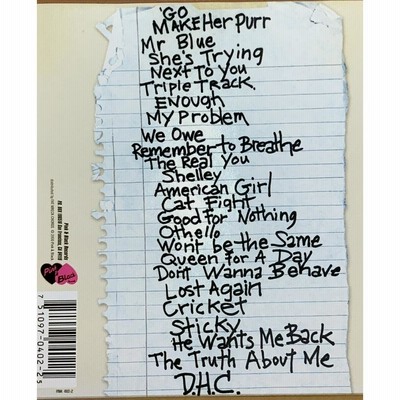 'GO
MAKE Her Purr
Mr Blue
She's Trying
Next To You
Triple Track
Enough
My Problem
We Owe
Remember to Breathe
The Real You
Shelley
American Girl
Cat Fight
Good for Nothing
Othello
Wont be the Same
Queen for A Day
Dont Wanna Behave
Lost Again
Cricket
Sticky
He Wants Me Back
The Truth About Me
D.H.C.
Pink & Black Records
Pink
& Black
7 51097-0402-2 5